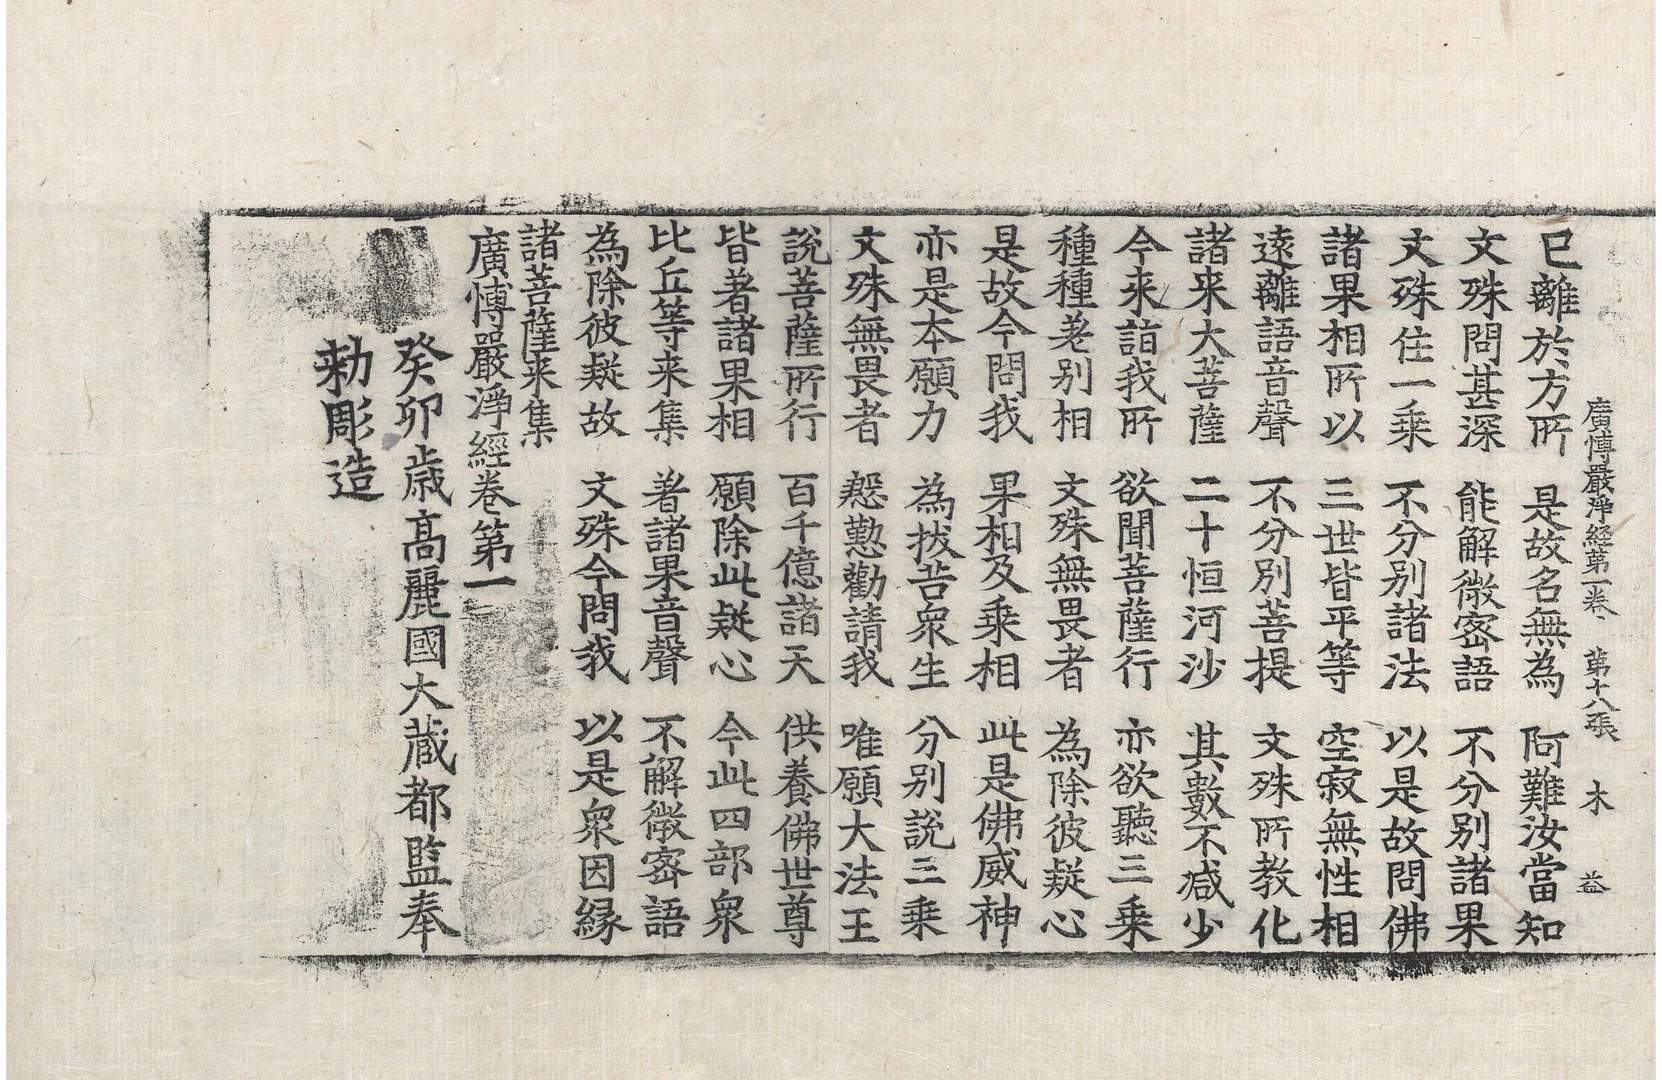 廣愽嚴淨経第一卷 第十八張 木 益
已離於方所 是故名無為 阿難汝當知
文殊問甚深 能解微密語 不分別諸果
文殊住一乘 不分別諸法 以是故問佛
諸果相所以 三世皆平等 空寂無性相
遠離語音聲 不分別菩提 文殊所教化
諸来大菩薩 二十恒河沙 其數不減少
今来詣我所 欲聞菩薩行 亦欲聽三乘
種種差別相 文殊無畏者 為除彼疑心
是故今問我 果相及乘相 此是佛威神
亦是本願力 為拔苦衆生 分別說三乘
文殊無畏者 慇懃勸請我 唯願大法王
說菩薩所行 百千億諸天 供養佛世尊
皆著諸果相 願除此疑心 今此四部衆
比丘等来集 著諸果音聲 不解微密語
為除彼疑故 文殊今問我 以是衆因緣
諸菩薩来集
廣愽嚴淨經卷第一
癸卯歲高麗國大藏都監奉
勑彫造